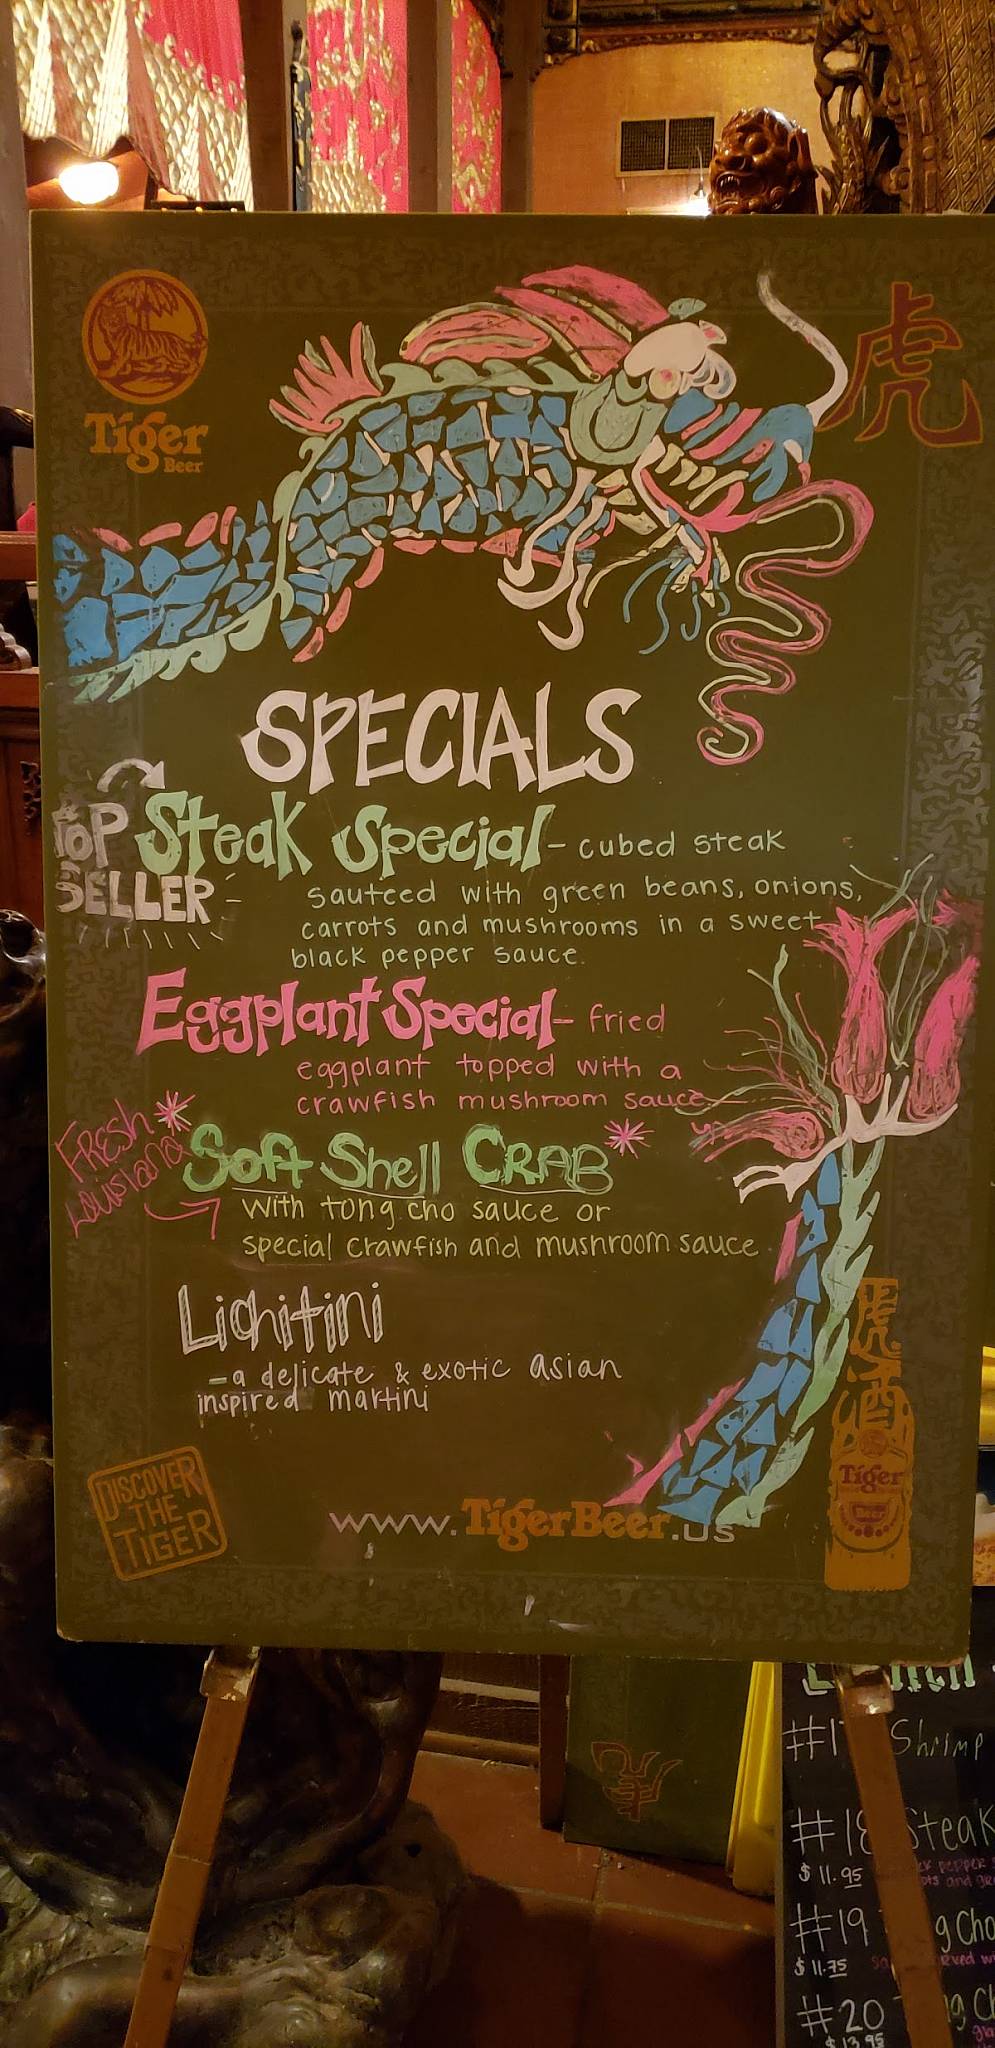 Tiger
Beer
虎
SPECIALS
TOP
SELLER
Steak Special - cubed steak
sauteed with green beans, onions,
carrots and mushrooms in a sweet
black pepper sauce.
Eggplant Special - fried
eggplant topped with a
crawfish mushroom sauce
FRESH
LOUISIANA
Soft Shell CRAB
with tong cho sauce or
special crawfish and mushroom sauce
Lichitini
- a delicate & exotic asian
inspired martini
虎
酒
Tiger
Beer
DISCOVER
THE
TIGER
www.TigerBeer.us
虎
Lunch
#17 Shrimp
#18 Steak
$11.95
pepper
and
#19
$11.75
#20
$13.95